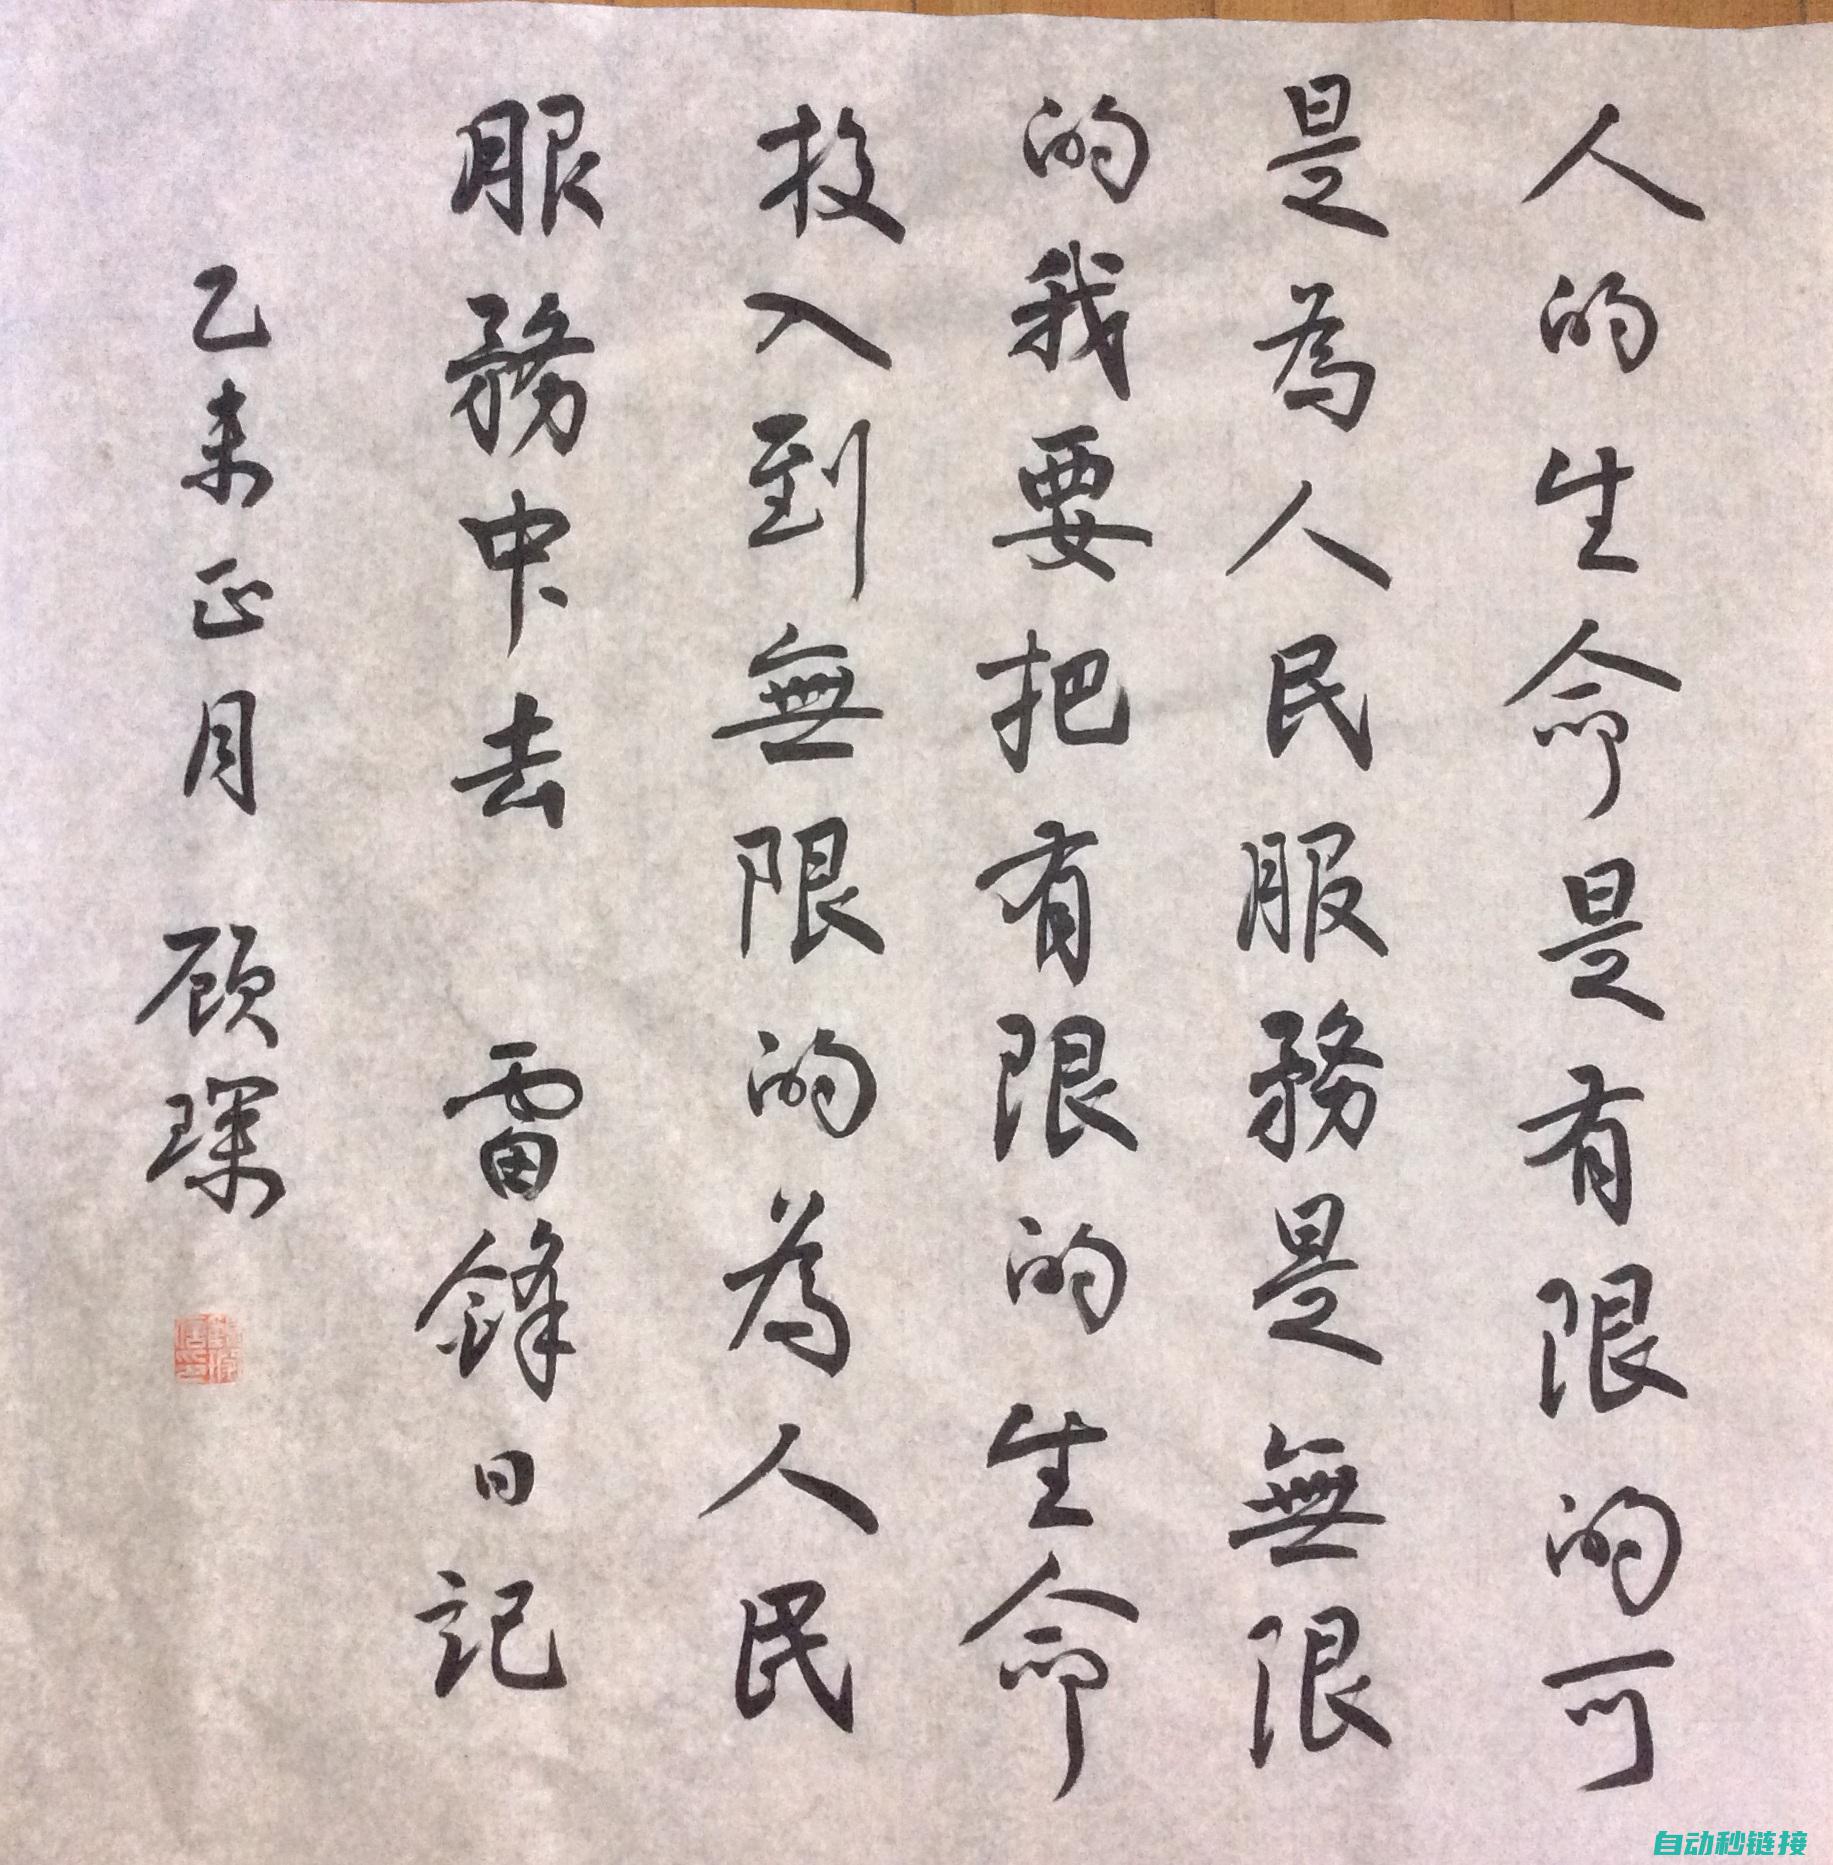 人的生命是有限的可
是為人民服務是無限
的我要把有限的生命
投入到無限的為人民
服務中、去 雷鋒日記
乙未正月 顾琛
自动秒链接